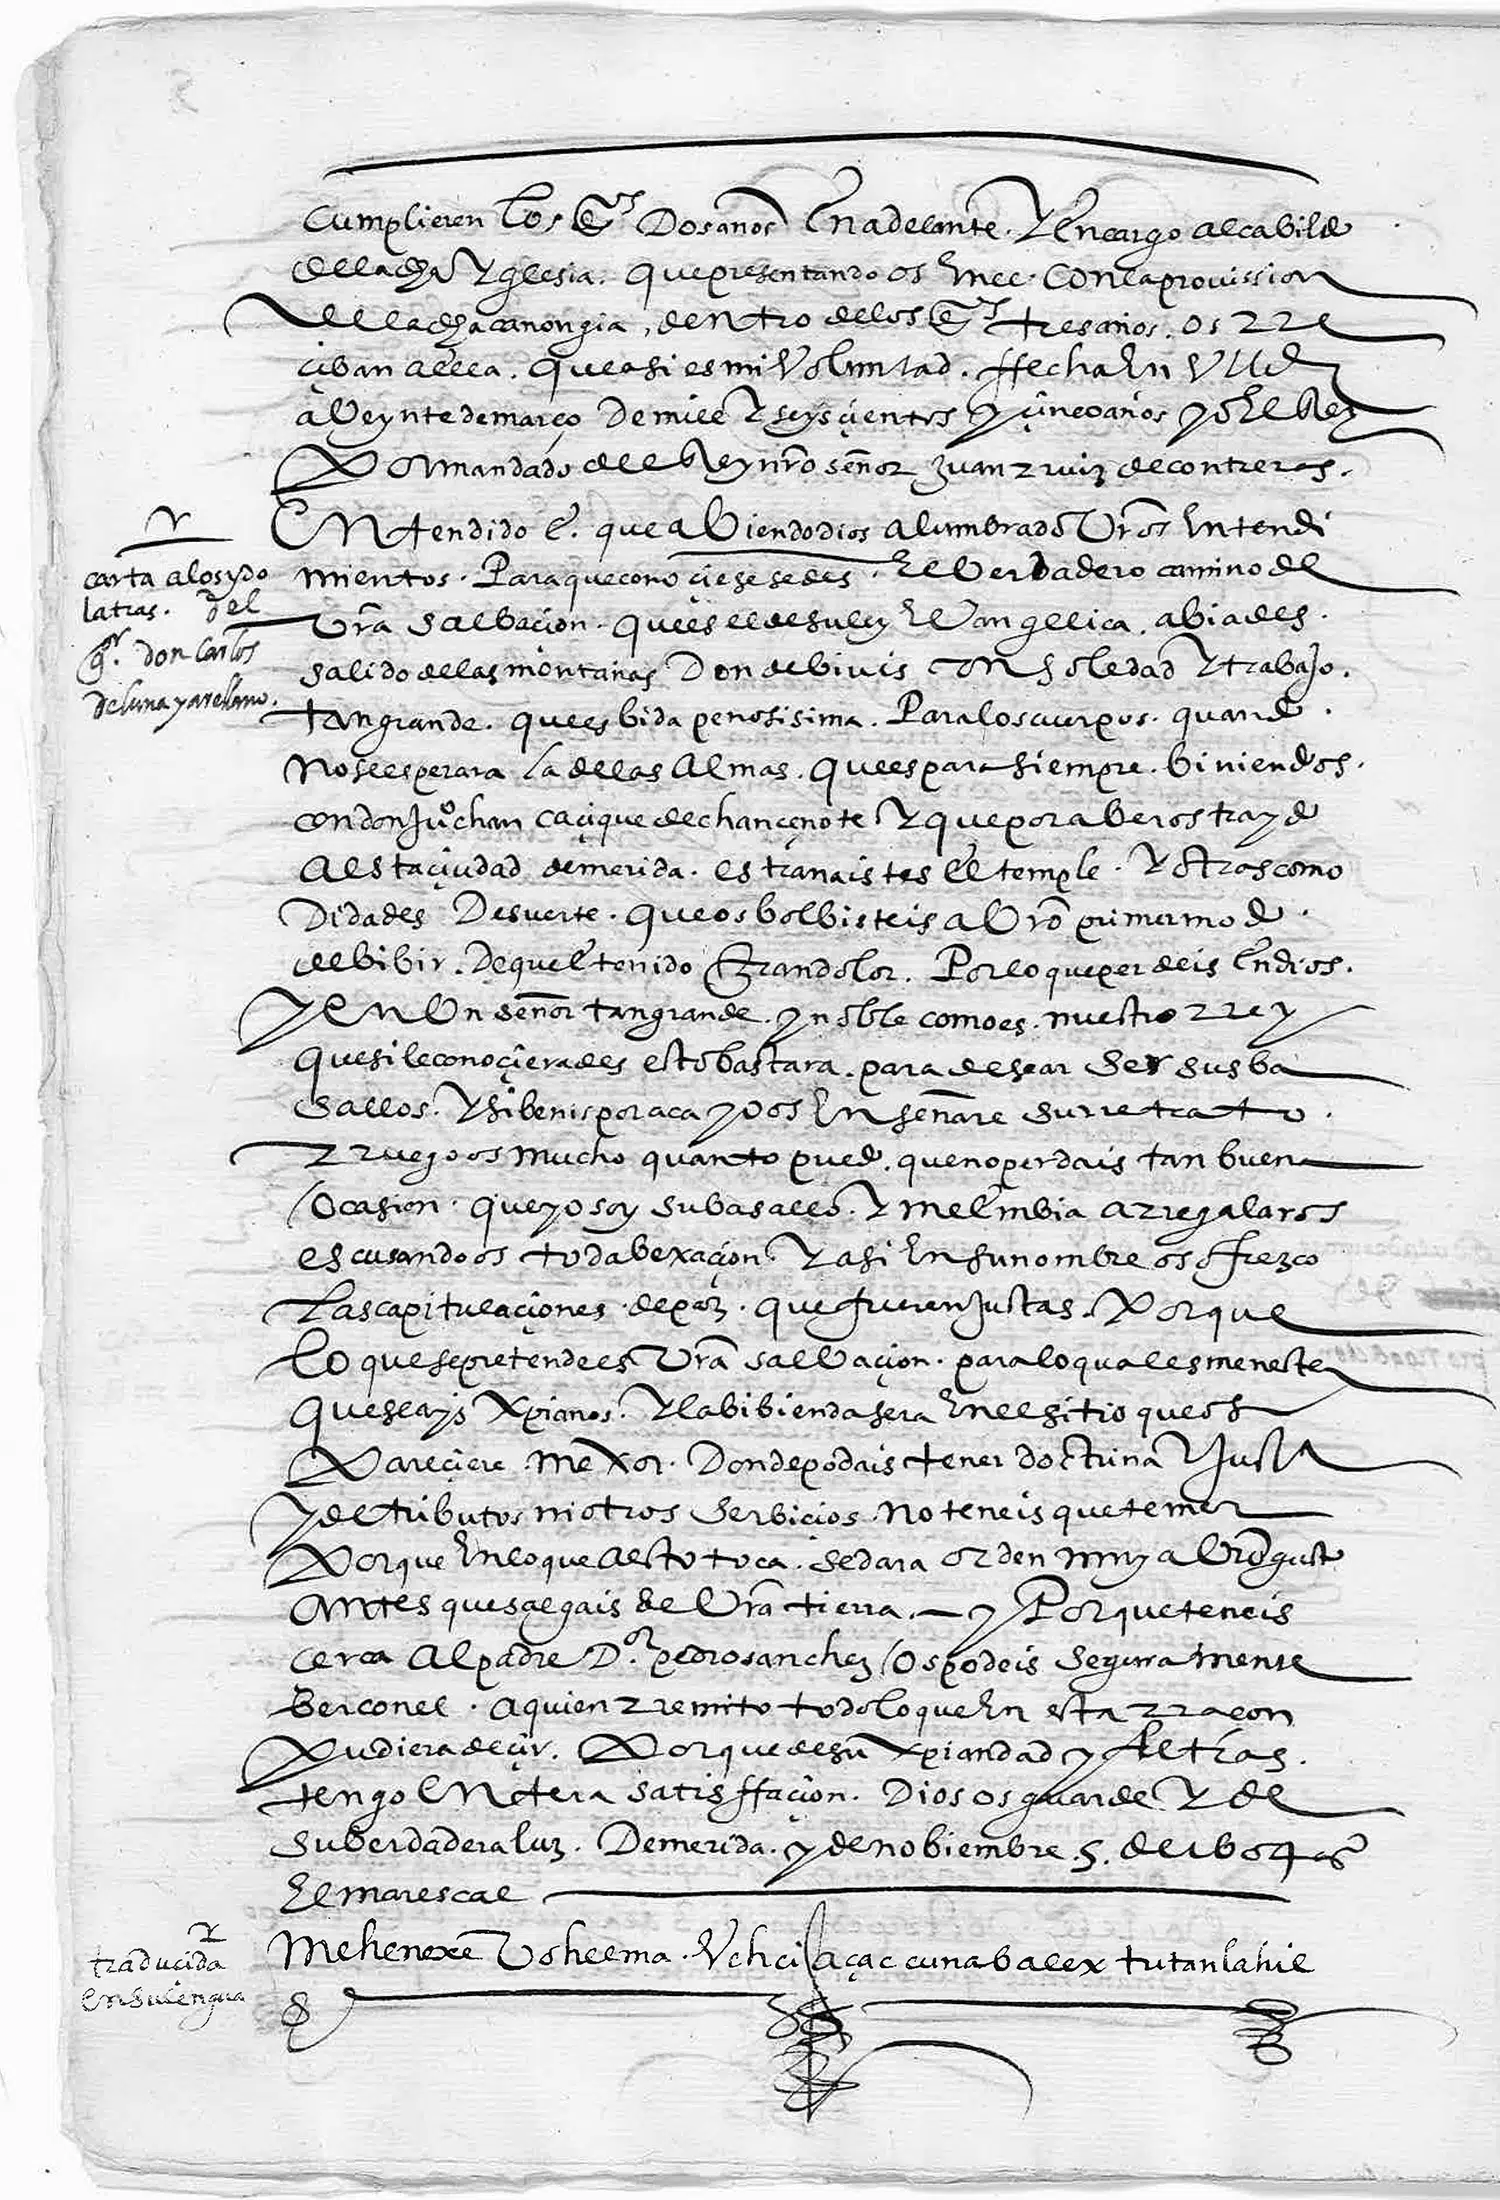 cumplieren los Dos años En adelante. Y Encargo al cabildo
de la dha Yglesia. que presentando os En ella. con la prouission
de la dha canongia, dentro de los tres años. os rre
çiban a ella. que asi es mi Voluntad. ffecha En Vlld
a Veynte de março De mill Y seysçientos y çinco años yo El Rey
Por mandado del Rey nro señor Juan rruiz de contreras.
carta a los ydo
latras. del
gor. don Carlos
de luna y arellano.
Entendido e. que abiendo dios alumbrado Vros Entendi
mientos. Para que conoçiesesedes. El Verdadero camino de
Vra salbaçion. que es el de su ley EVangelica. abiades.
salido de las montañas Donde bivis con soledad Y trabajo.
tan grande. que es bida penosisima. Para los cuerpos. quando.
no se esperara la de las Almas. que es para siempre. biniendos.
con don Juo chan caçique de chançenote Y que por aberos traydo
a esta çiudad de merida. estrañaistes El temple. Y otras como
Didades De suerte. que os bolbisteis a Vro primer modo.
de bibir. De que E tenido Gran dolor. Por lo que perdeis En dios.
y En Vn señor tan grande. y noble como es. nuestro rrey
que si le conoçierades esto bastara. para desear ser sus ba
sallos. Y si benis por aca yo os Enseñare su rretratto.
rruego os mucho quanto puedo. que no perdais tan buena
Ocasion. que yo soy su basallo. Y me Embia a rregalaros
escusando os toda bexaçion Y asi En su nombre os ofrezco
Las capitulaçiones de paz. que fueren Justas. Porque
Lo que se pretende es Vra salVaçion. para lo qual es menester
que seays Xpianos. Y la bibienda sera En el sitio que os
Pareçiere mexor. Donde podais tener doctrina Y Justa
y de tributos ni otros serbicios no teneis que temer
Porque En lo que a esto toca. se dara orden muy a Vro gusto
Antes que salgais de Vra tierra. — y Porque teneis
cerca Al padre Dor pedro sanchez Os podeis seguramente
ber con el. a quien rremito todo lo que En esta rraçon
Pudiera deçir. Porque de su xpiandad y letras.
tengo Entera satisffaçion. Dios os guarde Y de
su berdadera luz. De merida. y de nobiembre. 5. de 1604 as
El marescal
traducida
en su lengua
Mehenexe Vsheema. Vchci açac cunab alex tutanlahil